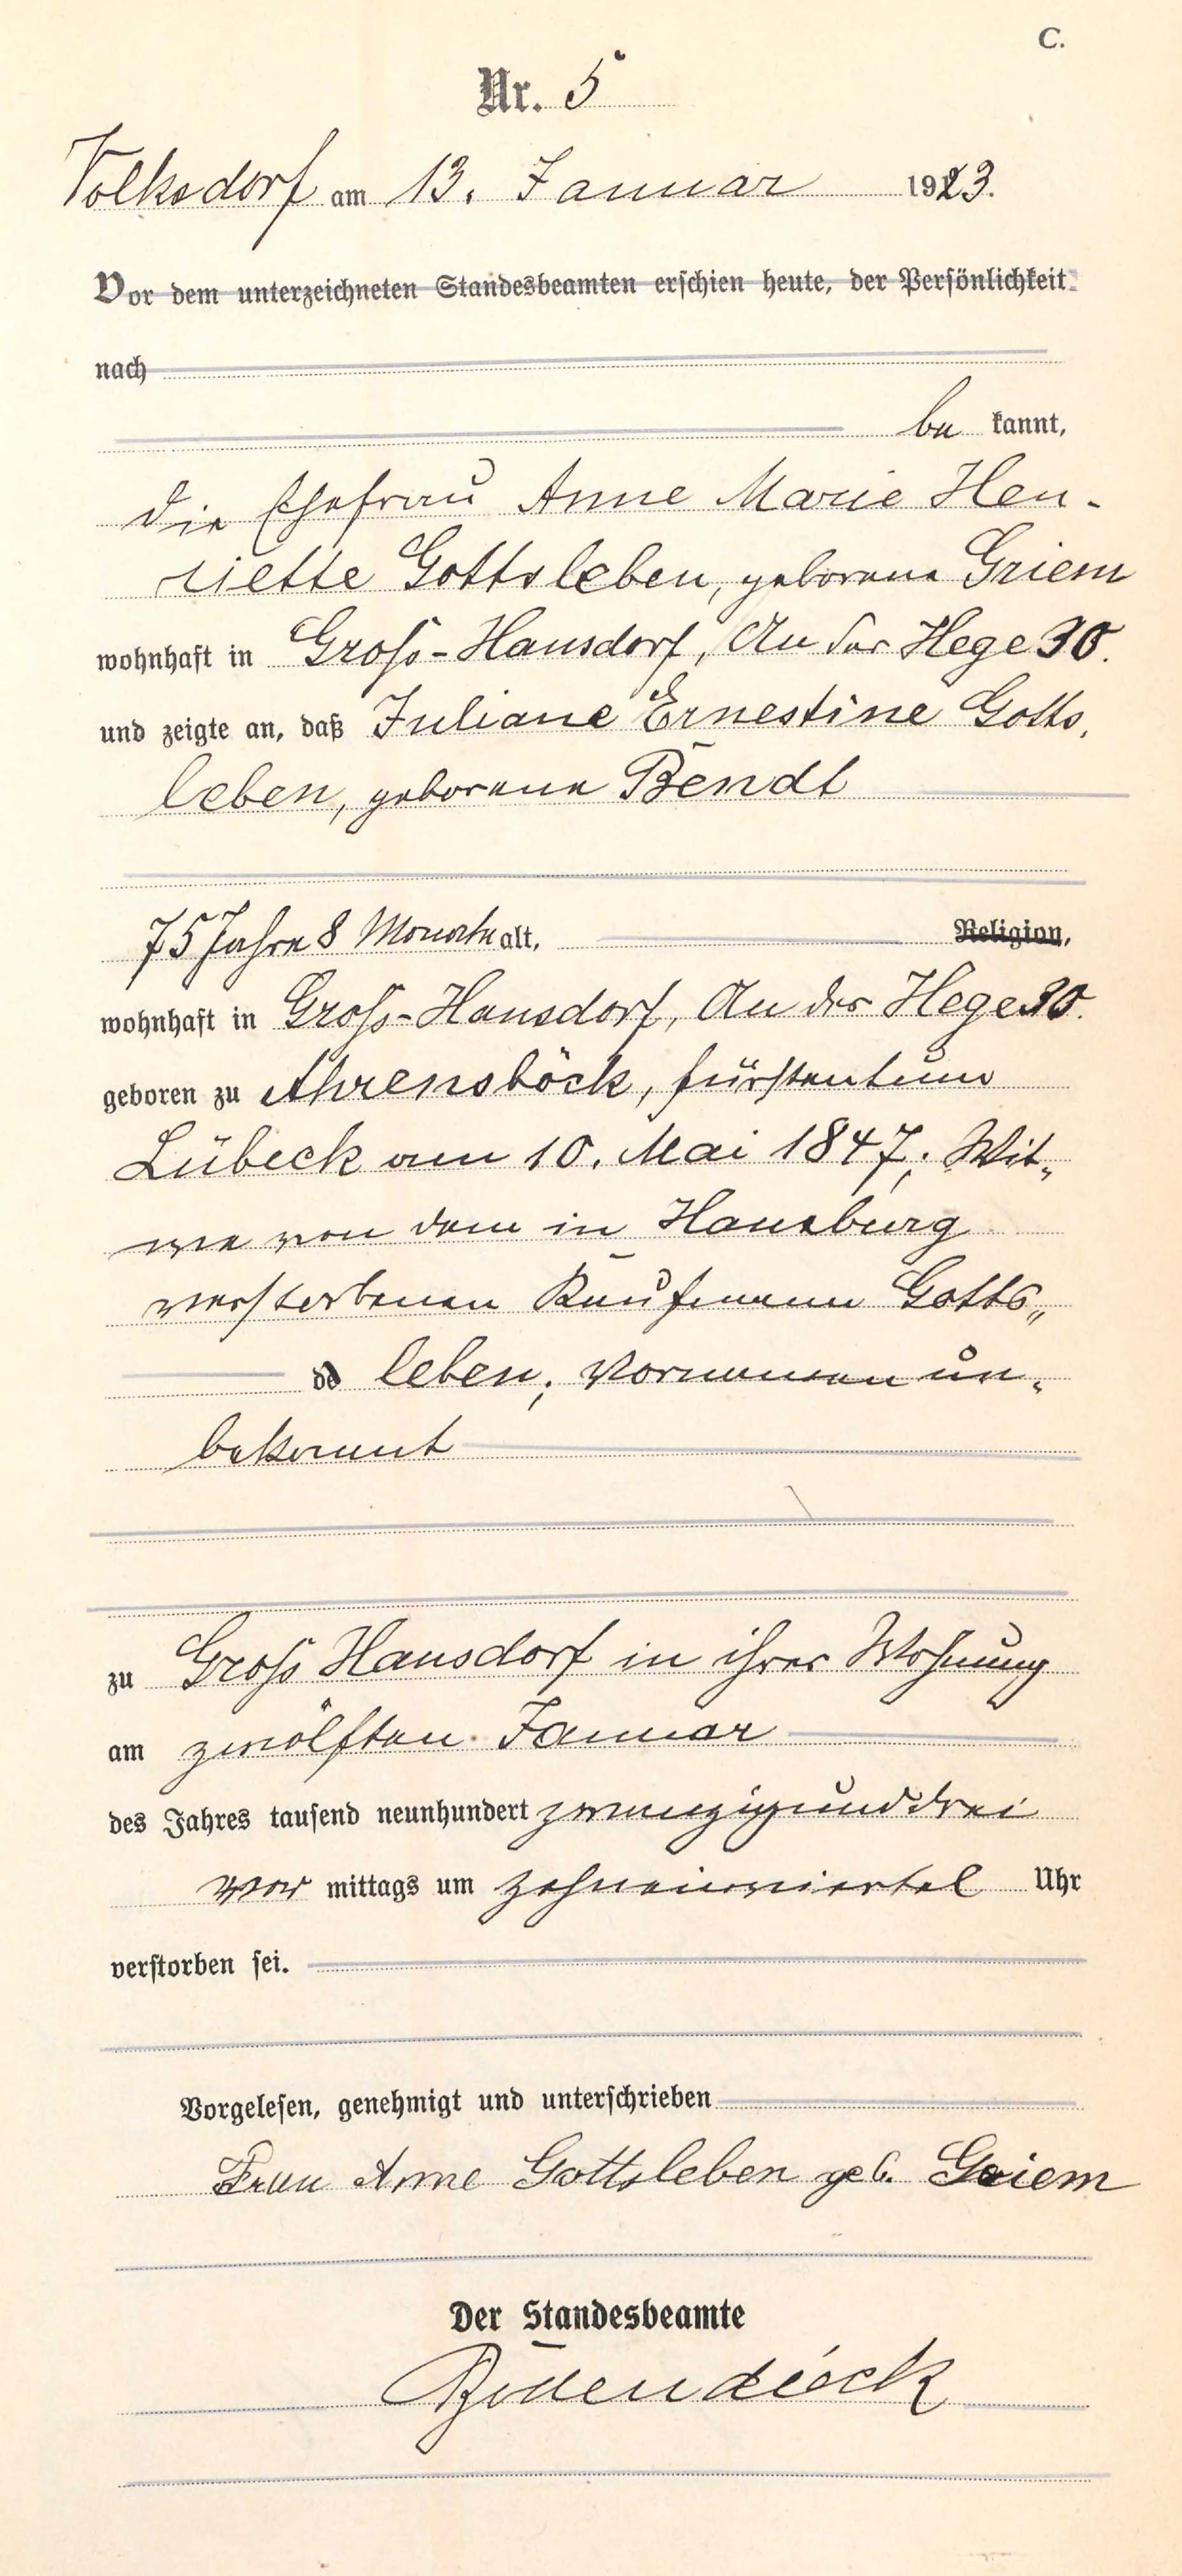 C.
Nr. 5
Volksdorf am 13. Januar 1923.
Vor dem unterzeichneten Standesbeamten erschien heute, der Persönlichkeit
nach
be kannt,
die Ehefrau Anne Marie Hen-
riette Gottsleben, geborene Griem
wohnhaft in Groß-Hansdorf, An der Hege 30.
und zeigte an, daß Juliane Ernestine Gotts,
leben, geborene Bendt
75 Jahre 8 Monate alt, Religion,
wohnhaft in Groß-Hansdorf, An der Hege 30.
geboren zu Ahrensböck, Fürstentum
Lübeck am 10. Mai 1847; Wit„
we von dem in Hamburg
verstorbenen Kaufmann Gotts„
leben; Vornamen un„
bekannt
zu Groß Hansdorf in ihrer Wohnung
am zwölften Januar
des Jahres tausend neunhundert zwanzigunddrei
vor mittags um zehneinviertel Uhr
verstorben sei.
Vorgelesen, genehmigt und unterschrieben
Frau Anne Gottsleben geb. Griem
Der Standesbeamte